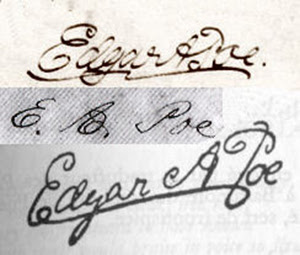 Edgar A Poe.
E. A. Poe
Edgar A Poe